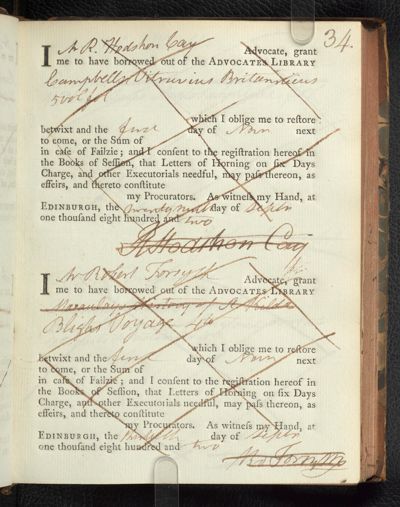 34.
I Mr R. Hodshon Cay Advocate, grant
me to have borrowed out of the ADVOCATES LIBRARY
Campbells Vitruvius Britannicus
5 vol
which I oblige me to restore
betwixt and the first day of Novr next
to come, or the Sum of
in case of Failzie; and I consent to the registration hereof in
the Books of Session, that Letters of Horning on six Days
Charge, and other Executorials needful, may pass thereon, as
effeirs, and thereto constitute
my Procurators. As witness my Hand, at
EDINBURGH, the twenty ninth day of Septr
one thousand eight hundred and two
R Hodshon Cay
I Mr Robert Forsyth Advocate, grant
me to have borrowed out of the ADVOCATES LIBRARY
Macaulays History of St Kilda
Blighs Voyage 4to
which I oblige me to restore
betwixt and the first day of Novr next
to come, or the Sum of
in case of Failzie; and I consent to the registration hereof in
the Books of Session, that Letters of Horning on six Days
Charge, and other Executorials needful, may pass thereon, as
effeirs, and thereto constitute
my Procurators. As witness my Hand, at
EDINBURGH, the thirtieth day of Septr
one thousand eight hundred and two
Ro Forsyth